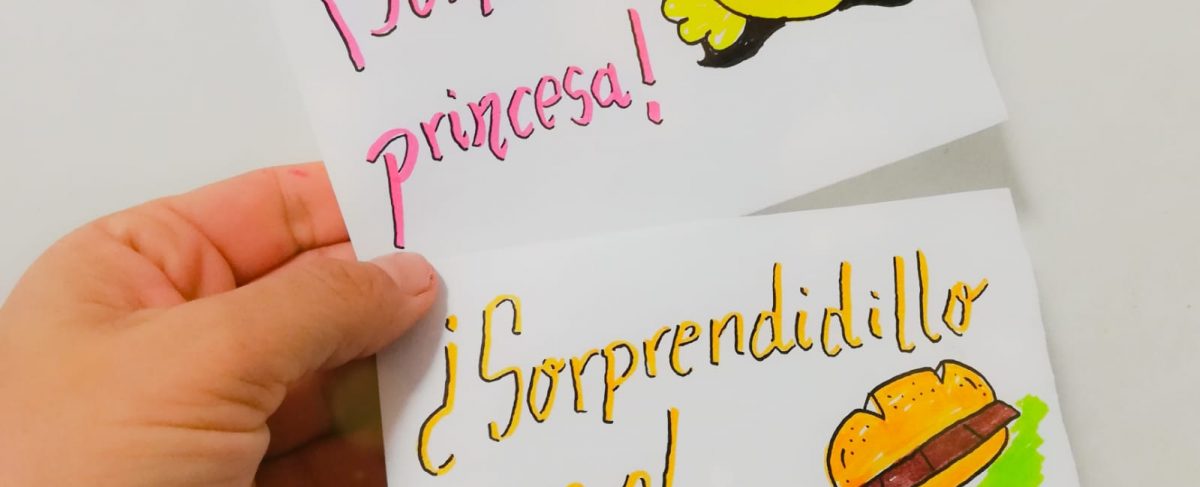 princesa!
¿Sorprendidillo